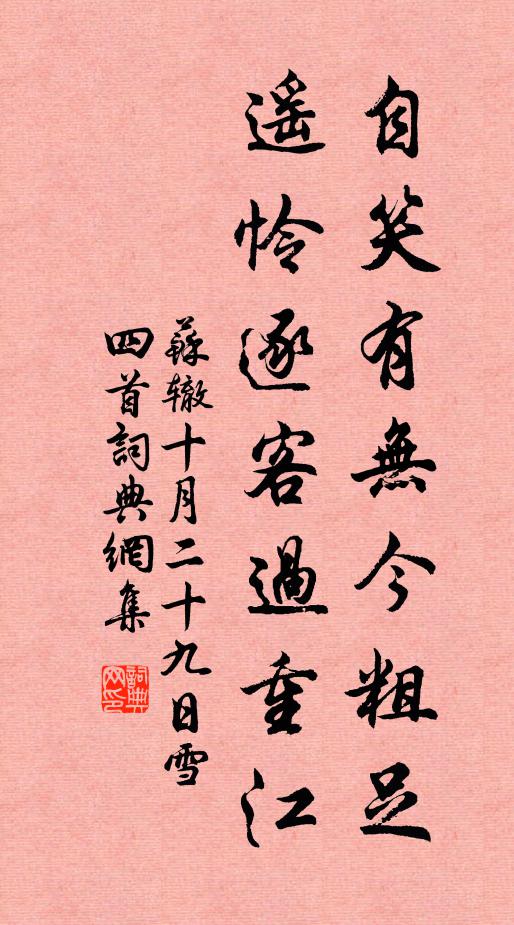 自笑有無今粗足
遥怜逐客過重江
蘇辙十月二十九日雪
四首詞典網集
詞典網印